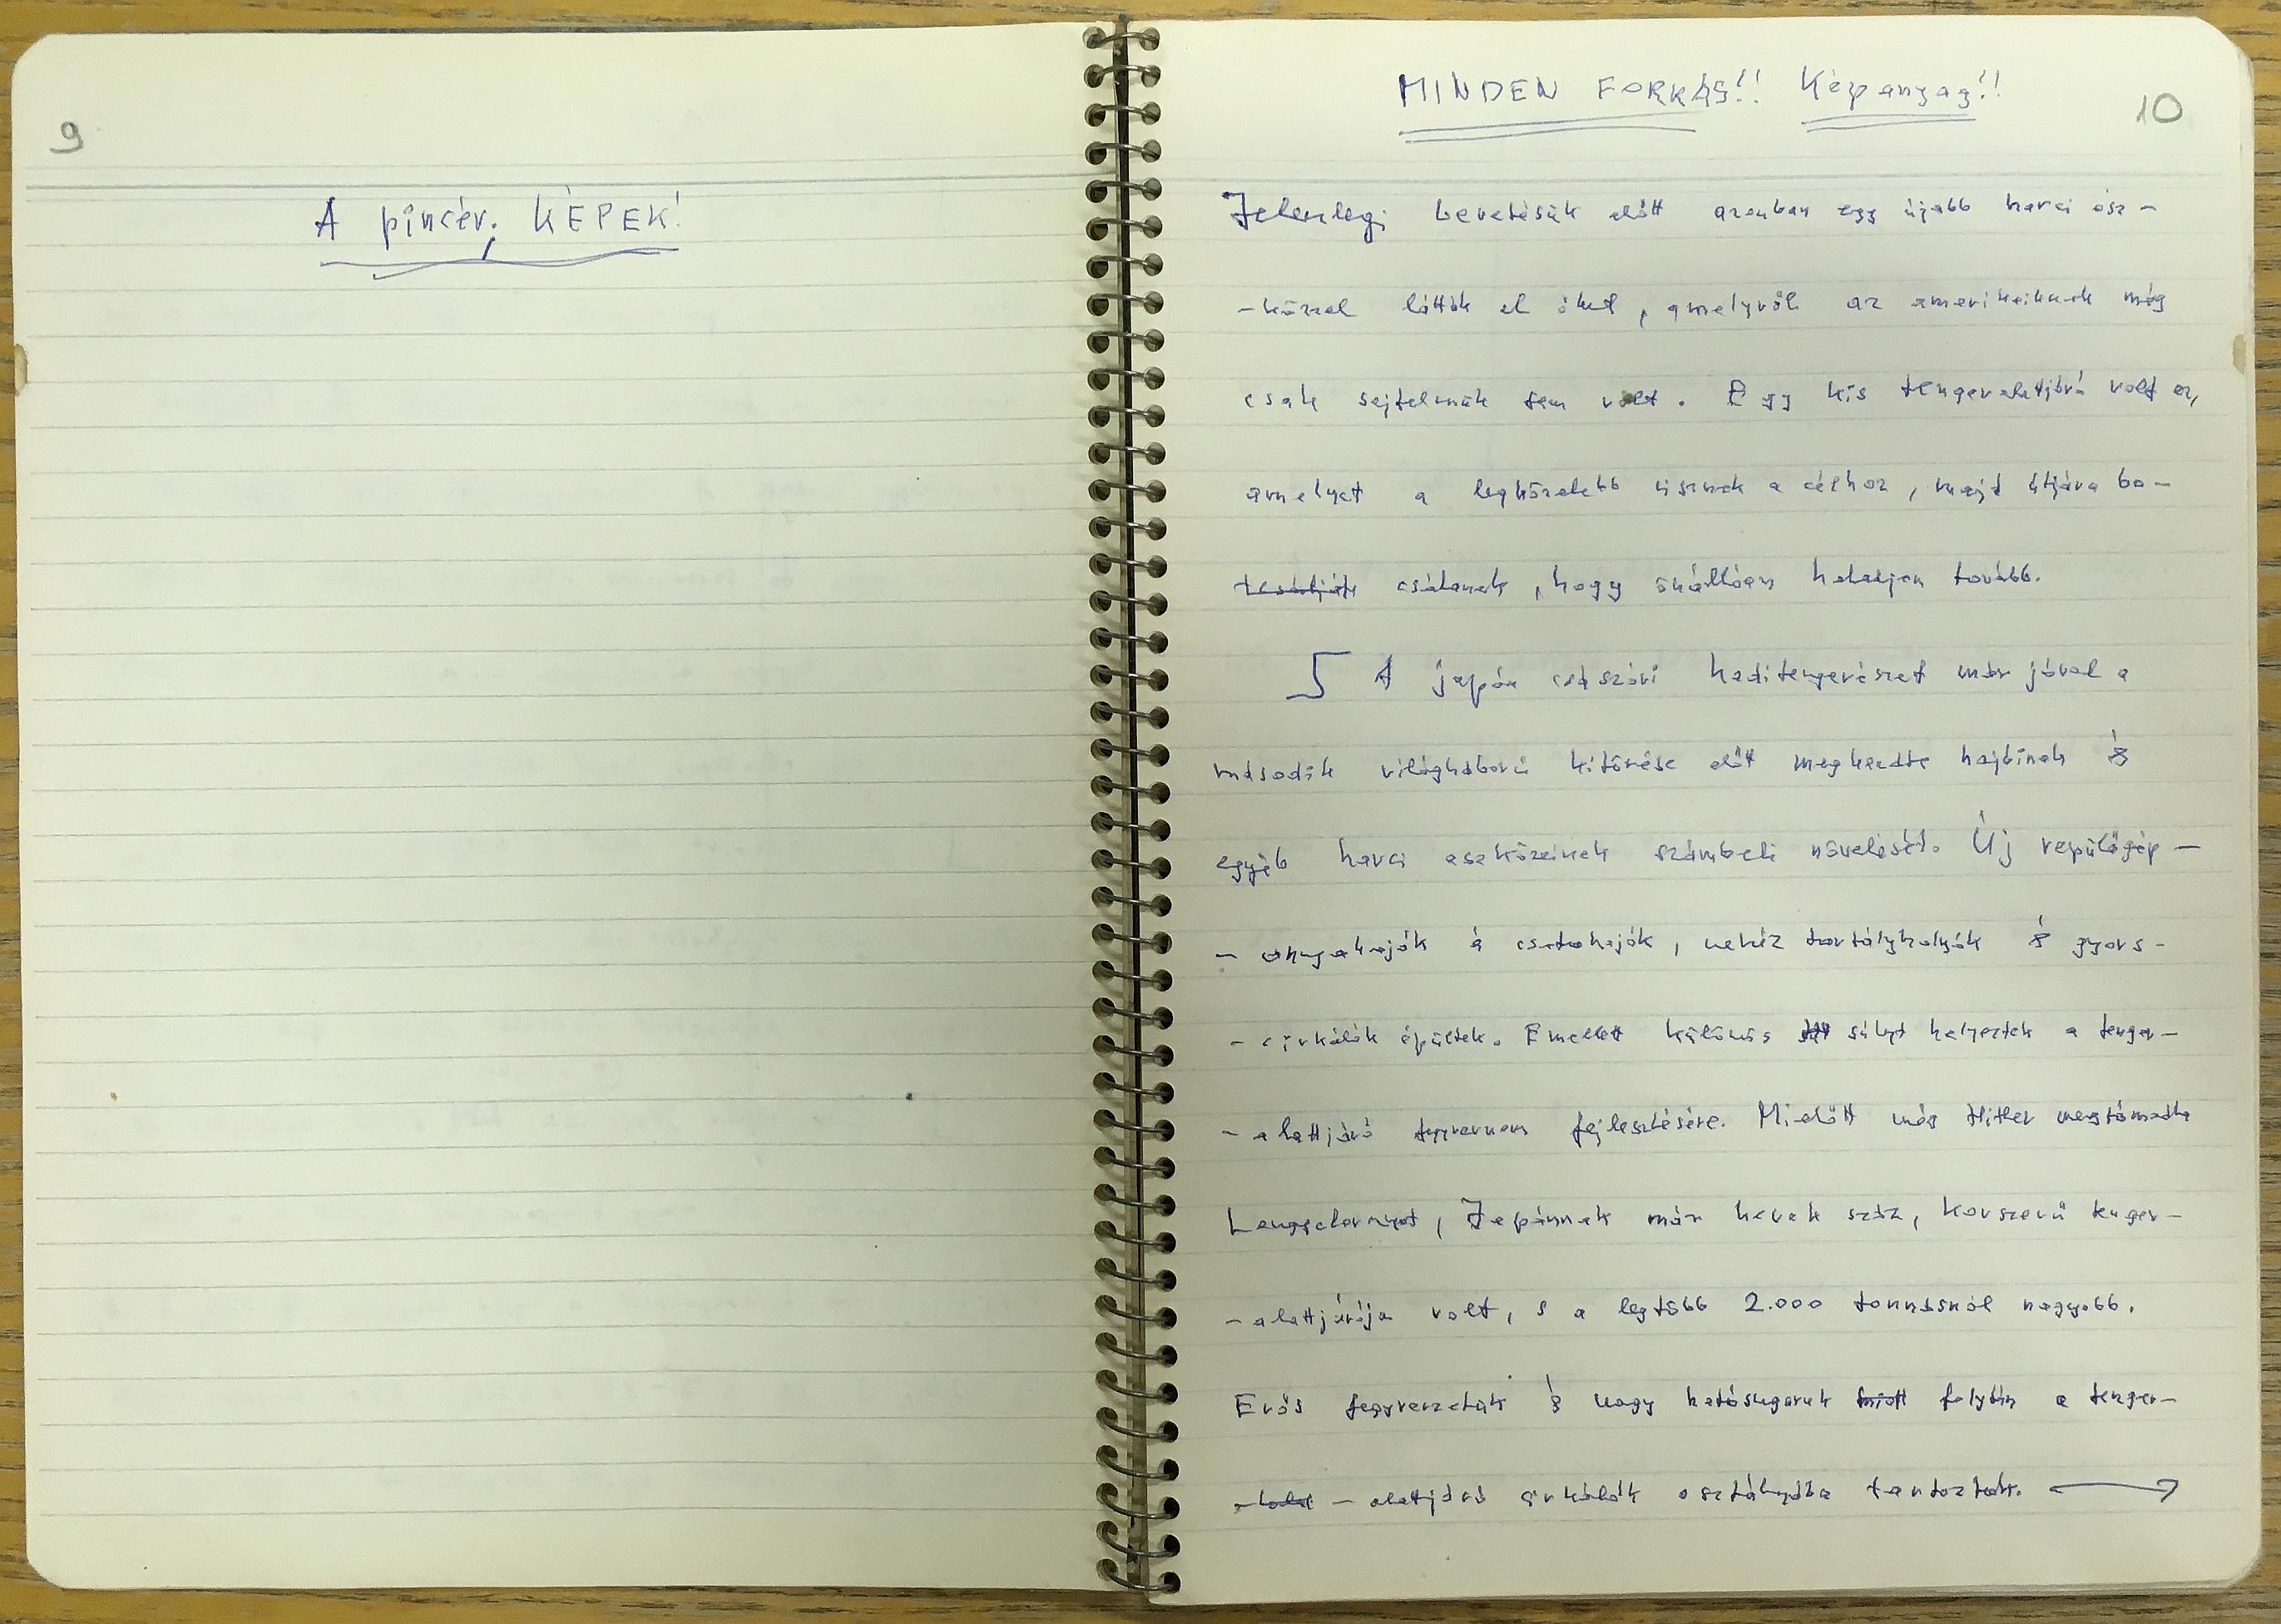 9
A pincér, KÉPEK!
MINDEN FORRÁS!! Képanyag!!
10
Jelenlegi bevetésük előtt azonban egy újabb harci esz-
-közzel látták el őket, amelyről az amerikaiknak még
csak sejtelmük sem volt. Egy kis tengeralattjáró volt ez,
amelyet a legközelebb visznek a célhoz, majd útjára bo-
csátanak, hogy önállóan haladjon tovább.
A japán császári haditengerészet már jóval a
második világháború kitörése előtt megkezdte hajóinak és
egyéb harci eszközeinek számbeli növelését. Új repülőgép-
- anyahajók és csatahajók, nehéz osztályhajók és gyors-
- cirkálók épültek. Emellett különös súlyt helyeztek a tenger-
- alattjáró fegyvernem fejlesztésére. Mielőtt még Hitler megtámadta
Lengyelországot, Japánnak már kerek száz, korszerű tenger-
- alattjárója volt, s a legtöbb 2.000 tonnásnál nagyobb.
Erős fegyverzetük és nagy hatósugaruk miatt folytán a tenger-
- alattjáró cirkálók osztályába tartoztak.